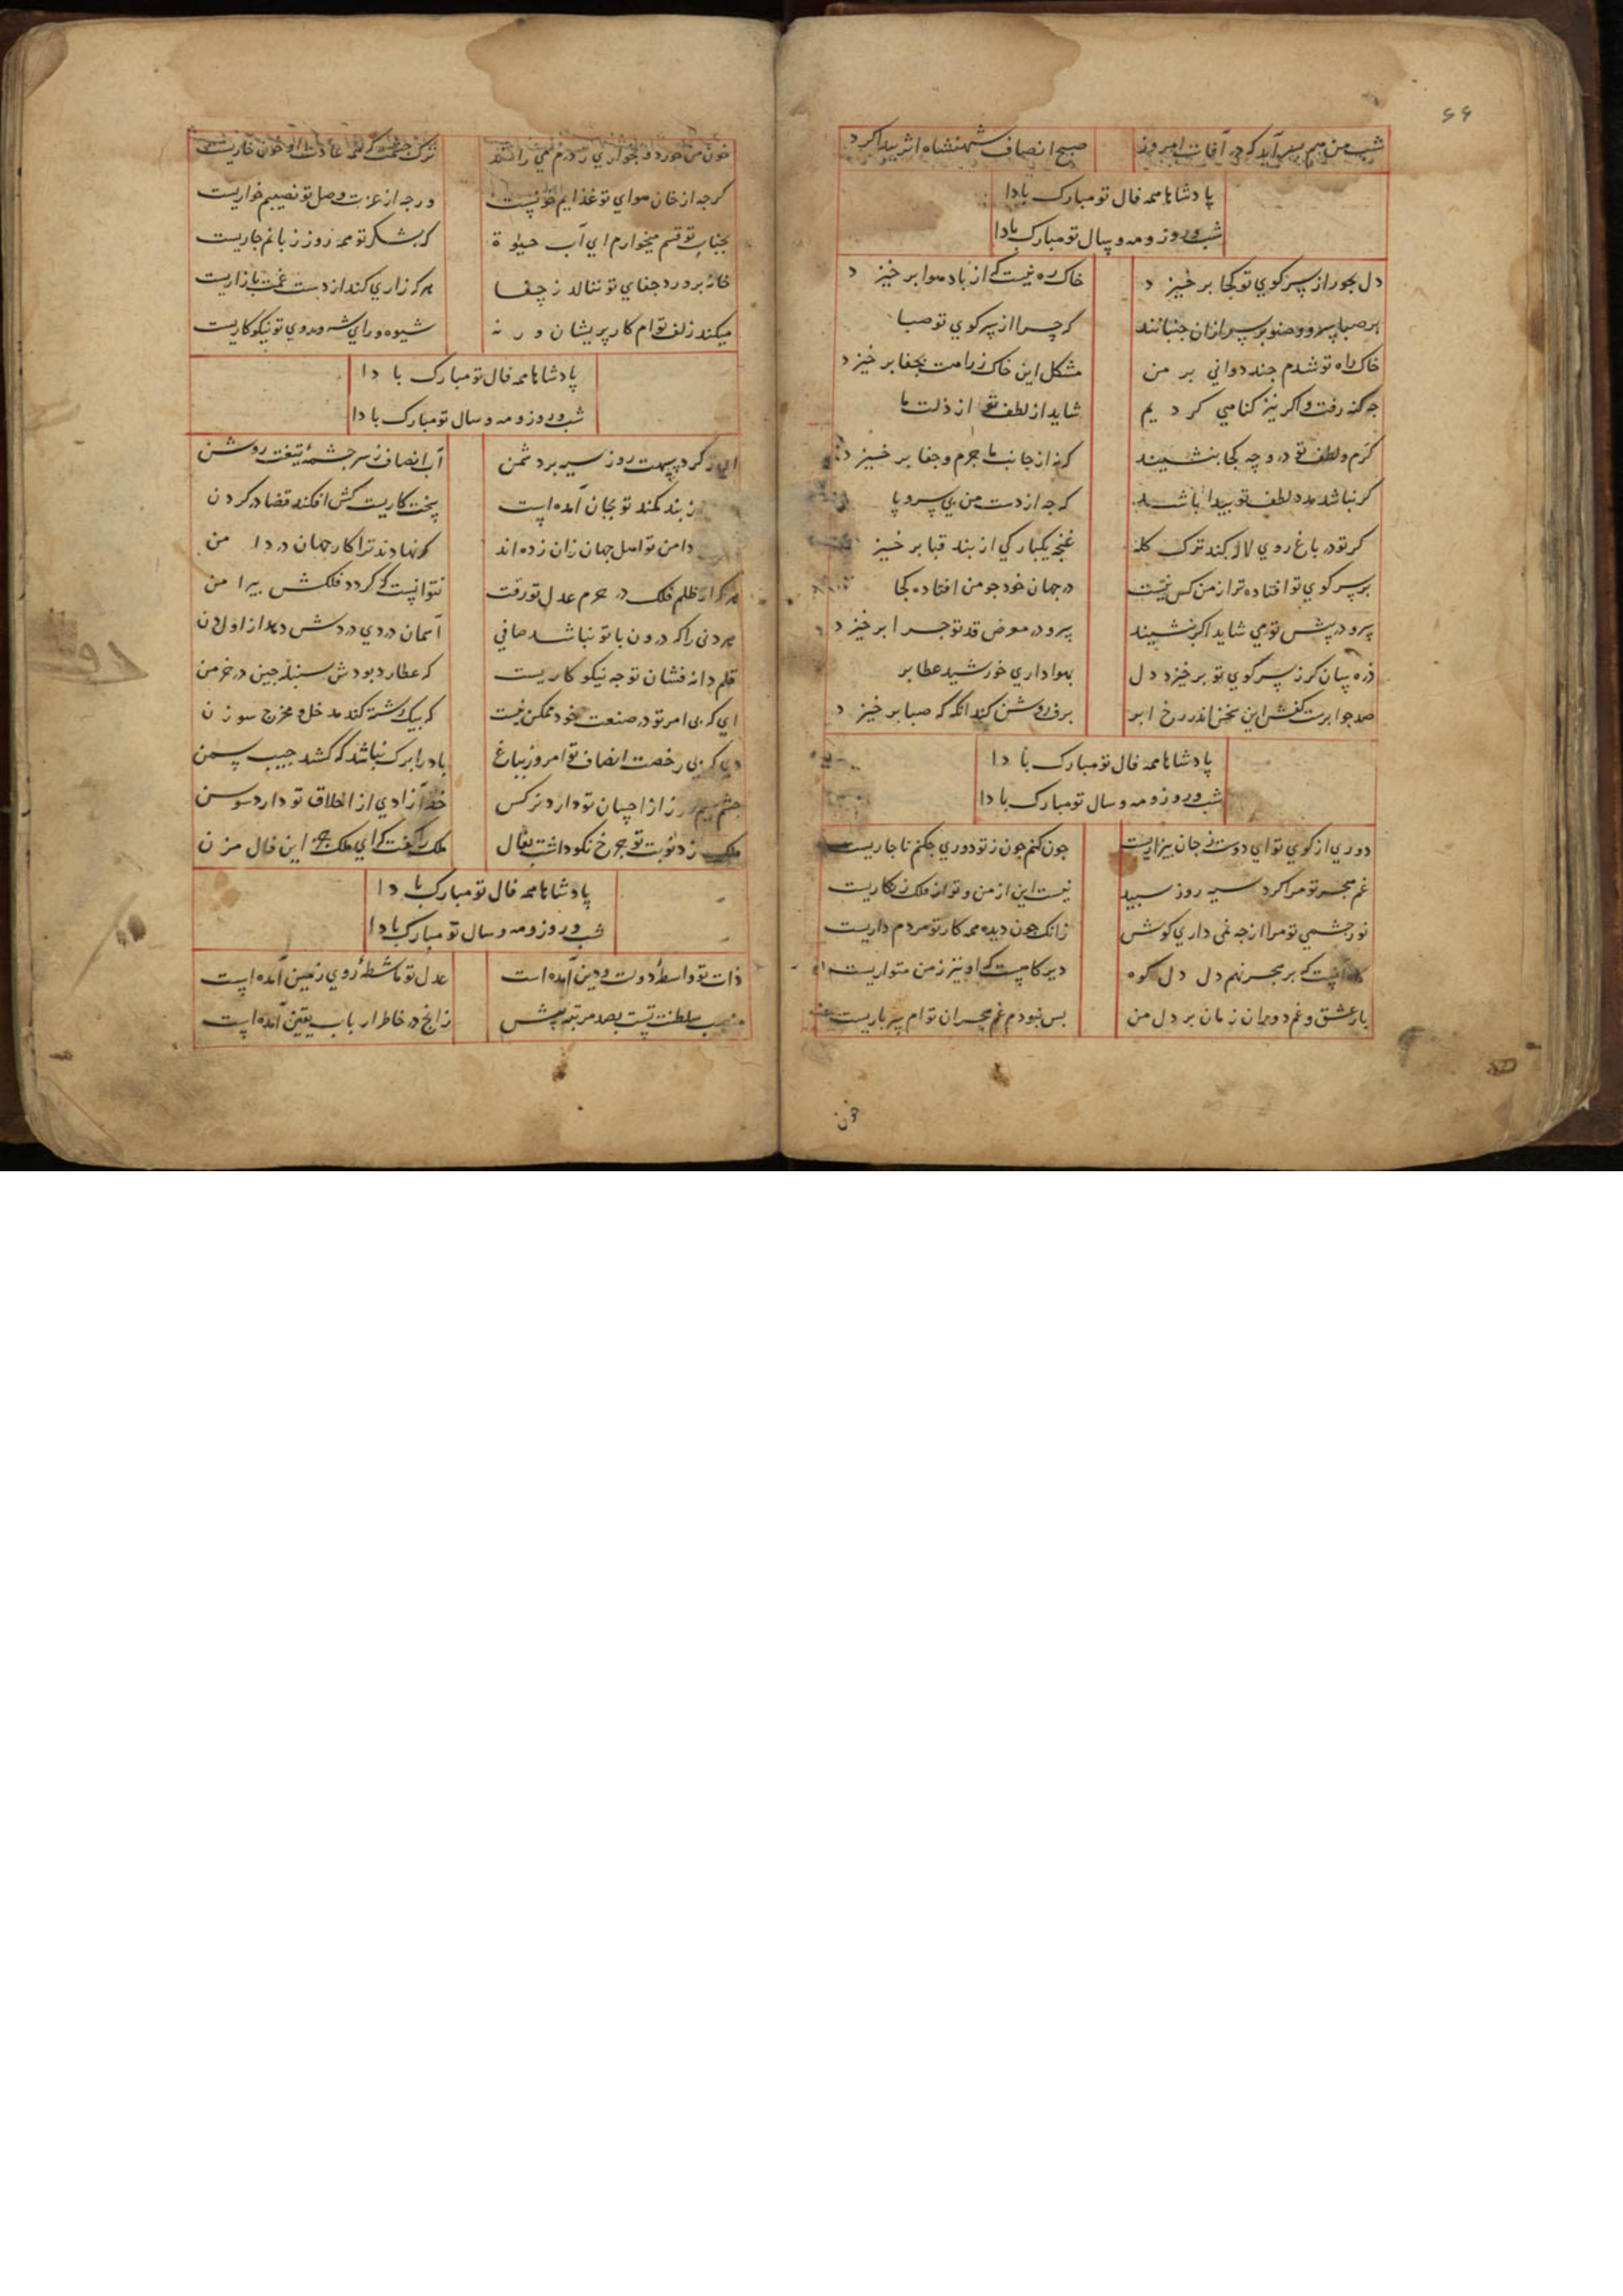 ۶۶
شب من هم بسر آید که در آفاق امروز صبح انصاف شهنشاه اثر پیدا کرد
پادشاها همه فال تو مبارک بادا
شب و روز و مه و سال تو مبارک بادا
دل بجور از سر کوي تو کجا برخیزد خاک ره نیست که از باد هوا برخیزد
هر صبا سرو و صنوبر سر ازان جنبانند که چرا از سر کوي تو صبا
خاک راه تو شدم چند دواني بر من مشکل این خاک ز راهت بجفا برخیزد
چه کنه رفت و اکر نیز کناهي کردیم شاید از لطف تو از ذلت ما
کرم و لطف تو در وجه کجا بنشیند کر نه از جانب ما جرم و جفا برخیزد
کر نباشد مدد لطف تو پیدا باشد که چه از دست من بي سر و پا
کر تو در باغ روي لاله کند ترک کله غنچه یکبارکي از بند قبا برخیزد
بر سر کوي تو افتاده تر از من کس نیست در جهان خود چو من افتاده کجا
سرو در پیش تو مي شاید اکر ننشیند سرو در معرض قد تو چرا برخیزد
ذره سان کر ز سر کوي تو برخیزد دل بهواداري خورشید عطا بر
صد جوابست کفش این سخن اندر رخ ابر برق روشن کند آنکه که صبا برخیزد
پادشاها همه فال تو مبارک بادا
شب و روز و مه و سال تو مبارک بادا
دوري از کوي تو اي دوست ز جان بیزاریست چون کنم چون ز تو دوري چکنم ناچاریست
غم هجر تو مرا کرد سیه روز سپید نیست این از من و تو از فلک زنکاریست
نور چشمي تو مرا از چه نمي داري کوش زانک چون دیده همه کار تو مردم داریست
که بر هجر نهم دل دل کوه دیر کاهیست که او نیز ز من متواریست
بار عشق و غم دوران زمان بر دل من بس نبودم غم هجران تو ام سر باریست
خون
خون من خورد و بخواري ز درم مي راند ترک چشمت که همه عادت او خون خواریست
کرچه از خان هواي تو غذایم خونست ورچه از عزت وصل تو نصیبم خواریست
بجناب تو قسم میخورم اي آب حیوة که بشکر تو همه روز زبانم جاریست
خانه برورد جفاي تو ننالد ز جفا هر که زاري کند از دست غمت بازاریست
میکند زلف تو ام کار پریشان ورنه شیوه و راي شه و روي تو نیکوکاریست
پادشاها همه فال تو مبارک بادا
شب و روز و مه و سال تو مبارک بادا
کرد سهمت روز سیه بر دشمن آب انصاف ز سر چشمه تیغت روشن
ز بند کمند تو بجان آمده است سخت کاریست کش افکند قضا در کردن
دامن تو اهل جهان زان زده اند که نهادند ترا کار جهان در دامن
هر که از ظلم فلک در حرم عدل تو رفت نتوانست که کردد فلکش پیرامن
هر دني را که درون با تو نباشد صافي آسمان دردي دردش دهد از اول دن
قلم دانه فشان تو چه نیکو کاریست که عطارد بودش سنبله چین در خرمن
اي که بي امر تو در صنعت خود ممکن نیست که بیک رشته کند مدخل و مخرج سوزن
وي که بي رخصت انصاف تو امروز بباغ باد را برک نباشد که کشد جیب سمن
چشم از احسان تو دارد نرکس خط آزادي از اخلاق تو دارد سوسن
ملک زد نوبت تو چرخ نکو داشت بفال ملک را کفت که اي ملک جز این فال مزن
پادشاها همه فال تو مبارک بادا
شب و روز و مه و سال تو مبارک بادا
ذات تو واسطهٔ دولت و دین آمده است عدل تو ماشطهٔ روي زمین آمده است
منصب سلطنت تست بصد مرتبه پیش زانچ در خاطر ارباب یقین آمده است